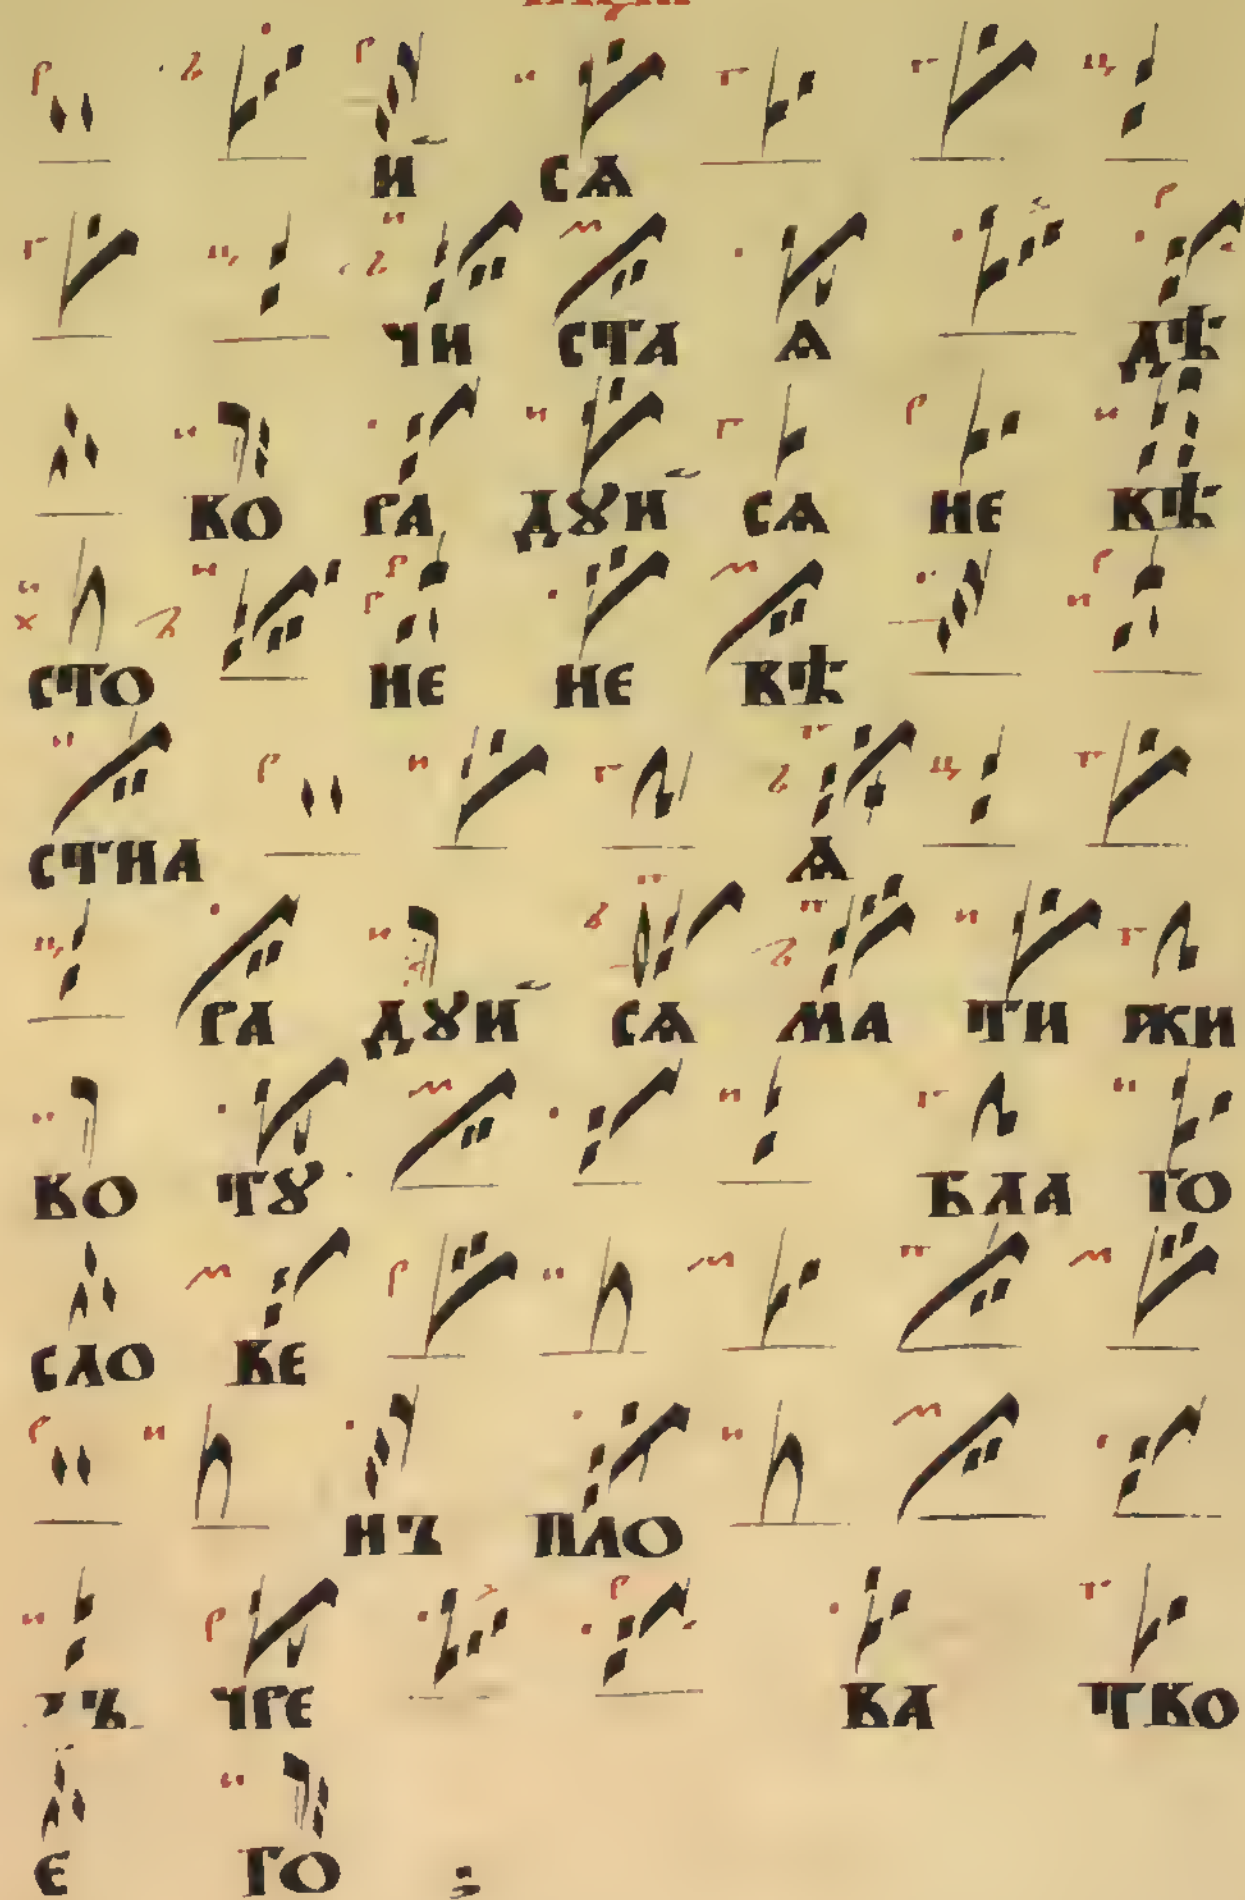 Й СѦ
ЧИ СТА Ѧ ДѢ
КО РА ДꙊЙ СѦ НЕ ВѢ
СТО НЕ НЕ ВѢ
СТНА Ѧ
РА ДꙊЙ СѦ МА ТИ ЖИ
ВО ТꙊ БЛА ГО
СЛО ВЕ
НЪ ПЛО
ДЪ ЧРЕ ВА ТВО
Е ГО